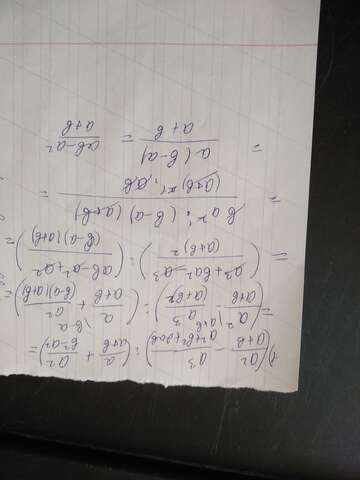 1) (a²/(a+b) − a³/(a²+b²+2ab)) : (a/(a+b) + a²/(b²−a²)) =
= (a²/(a+b) − a³/(a+b)²) : (a/(a+b) + a²/((b−a)(a+b))) =
= ((a³+ba²−a³)/(a+b)²) : ((ab−a²+a²)/((b−a)(a+b))) =
= a(b−a)/(a+b) = (ab−a²)/(a+b)